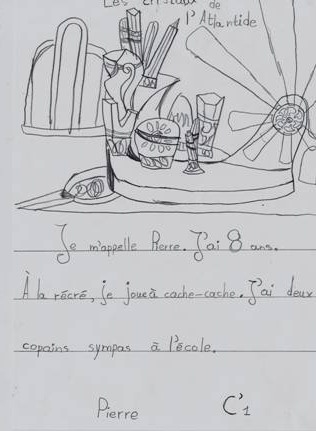 Les cristaux de
l'Atlantide
Je m'appelle Pierre. J'ai 8 ans.
À la récré, je joue à cache-cache. J'ai deux
copains sympas à l'école.
Pierre C'1